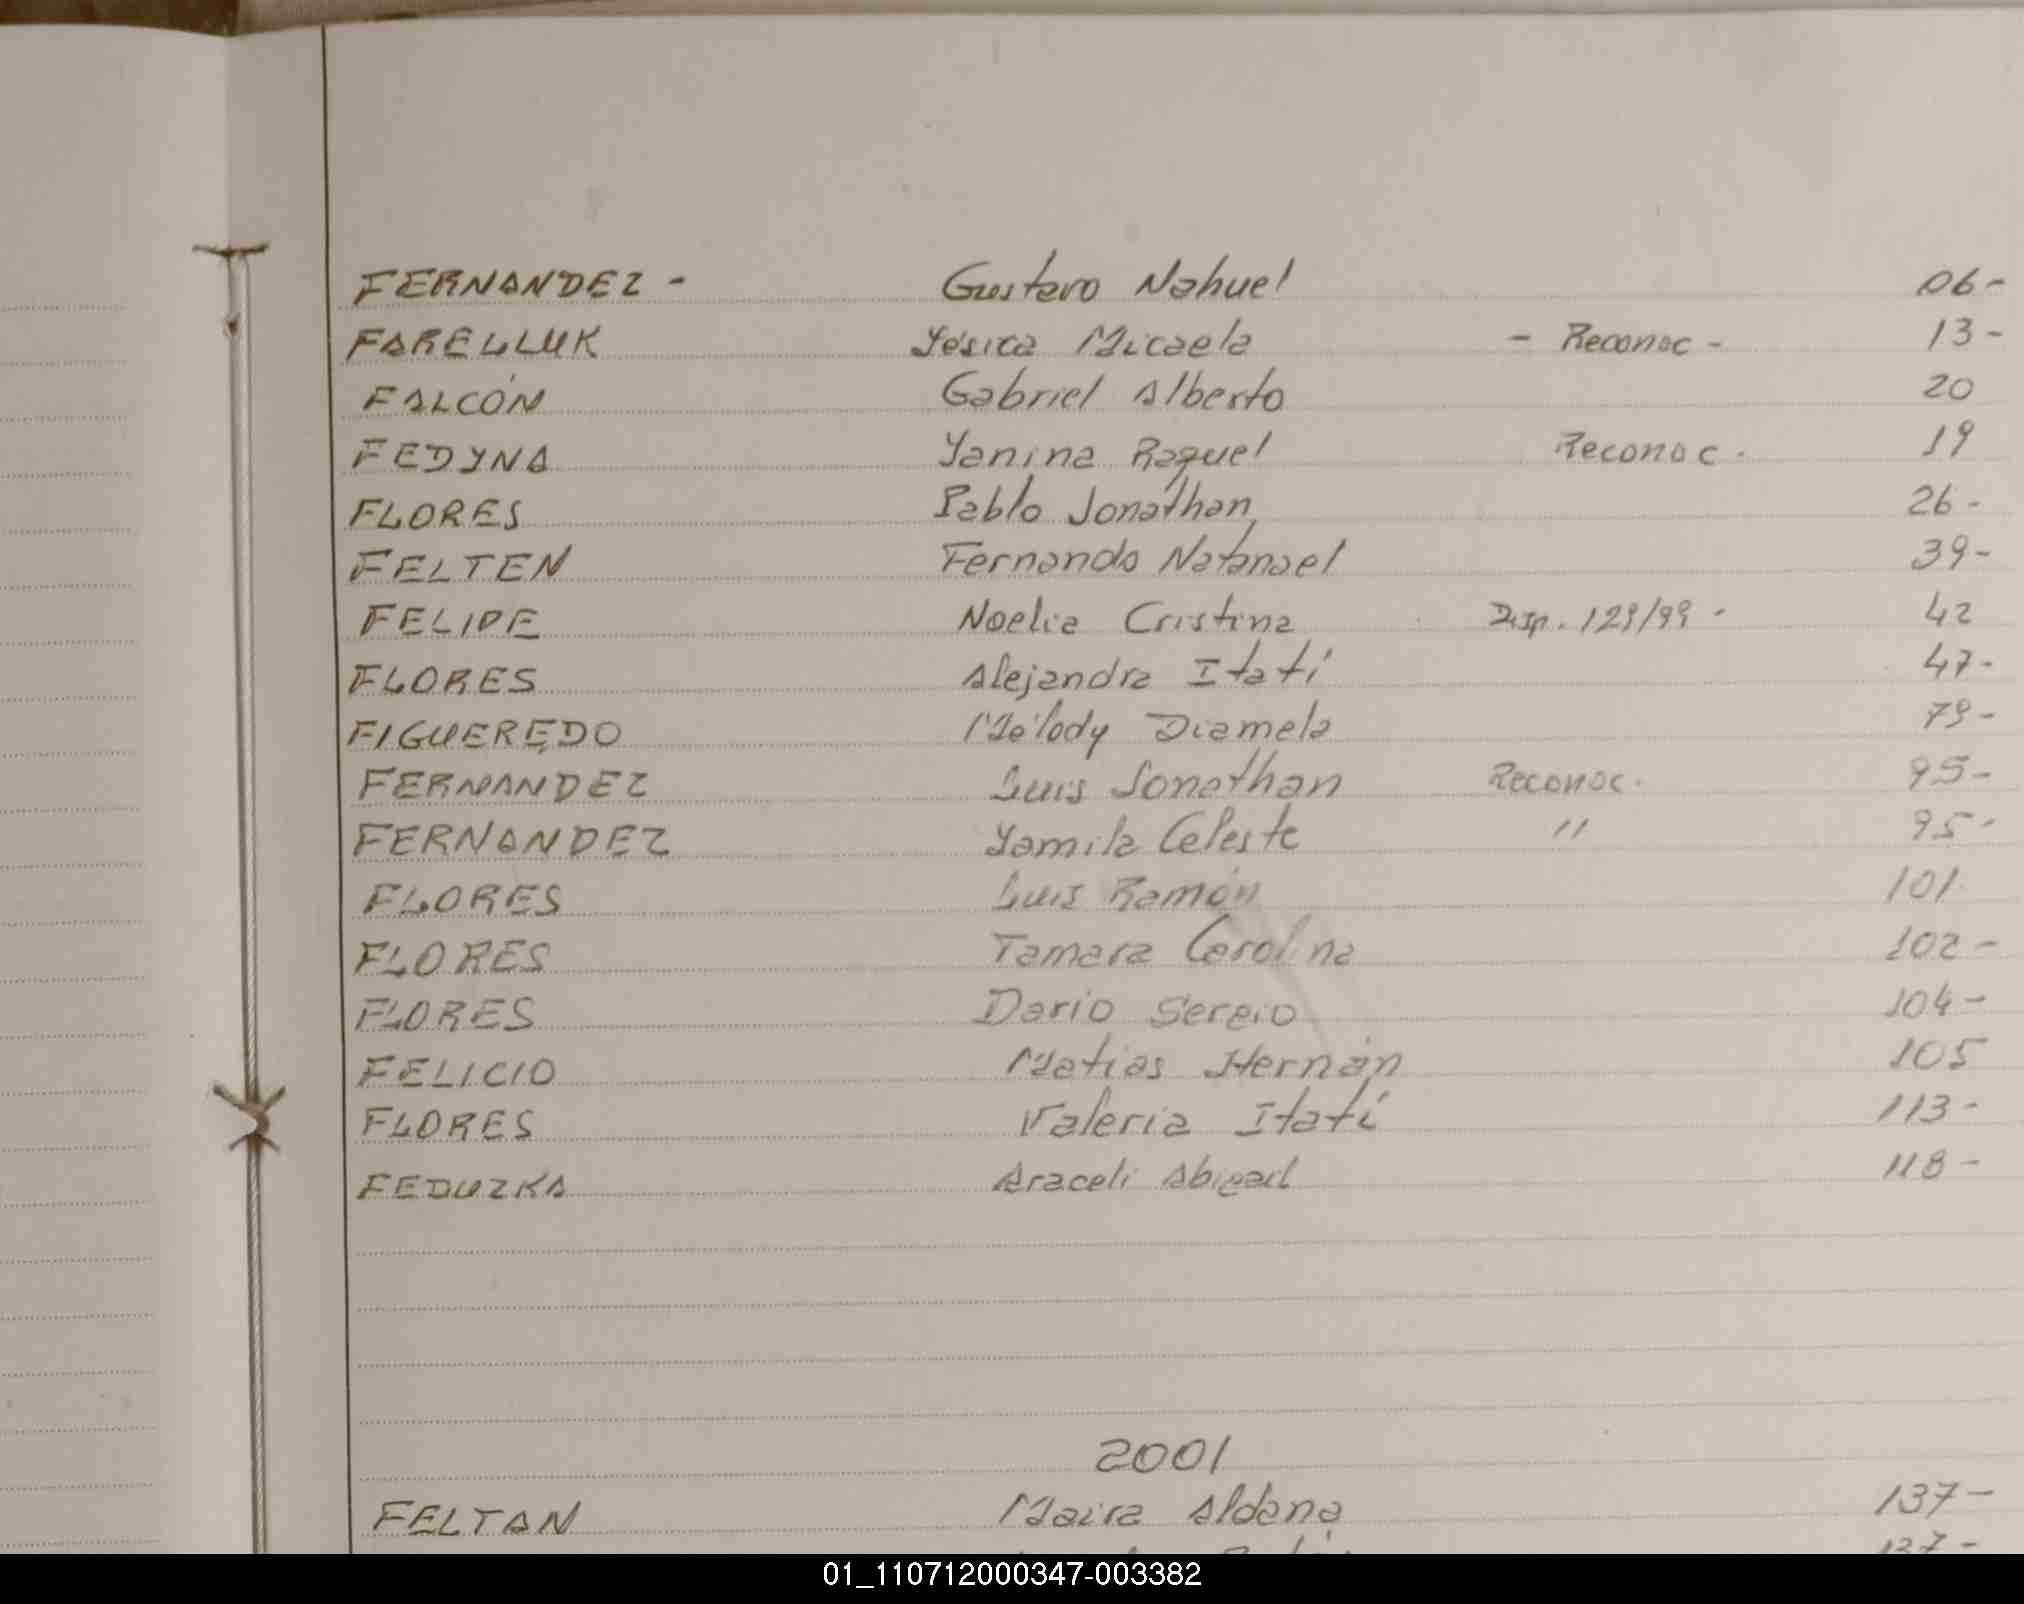 FERNANDEZ - Gustavo Nahuel 06-
FARELLUK Yésica Micaela - Reconoc - 13-
FALCÓN Gabriel Alberto 20
FEDYNA Yanina Raquel Reconoc. 19
FLORES Pablo Jonathan 26-
FELTEN Fernando Natanael 39-
FELIPE Noelia Cristina Disp. 129/99 - 42
FLORES Alejandra Itatí 47-
FIGUEREDO Mélody Diamela 79-
FERNANDEZ Luis Jonathan Reconoc. 95-
FERNANDEZ Yamila Celeste " 95-
FLORES Luis Ramón 101
FLORES Tamara Carolina 102-
FLORES Dario Sergio 104-
FELICIO Matias Hernán 105
FLORES Valeria Itatí 113-
FEDUZKA Araceli Abigail 118-
2001
FELTAN Maira Aldana 137-
137-
01_110712000347-003382